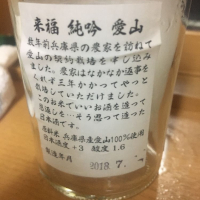 来福 純吟 愛山
数年前兵庫県の農家を訪ねて
愛山の契約栽培を申し込み
ました。農家はなかなか返事を
くれず三年かかってやっと
栽培していただけました。
このお米でいいお酒を造って
恩返しを…そう思って造った
お酒です。
原料米 兵庫県産愛山100%使用
日本酒度 +3 酸度 1.6
製造年月 2019. 7.